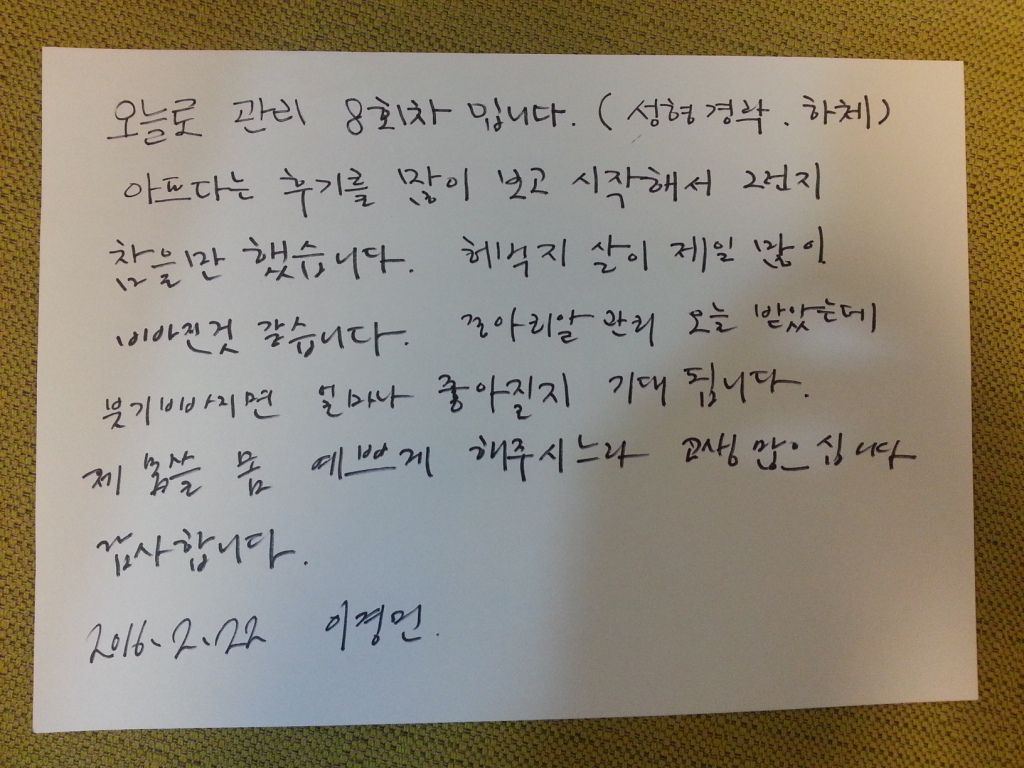 오늘로 관리 8회차 입니다. (성형경락. 하체)
아프다는 후기를 많이 보고 시작해서 그런지
참을만 했습니다. 허벅지 살이 제일 많이
빠진것 같습니다. 종아리알 관리 오늘 받았는데
붓기빠지면 얼마나 좋아질지 기대 됩니다.
제 몹쓸 몸 예쁘게 해주시느라 고생 많으십니다
감사합니다.
2016.2.22